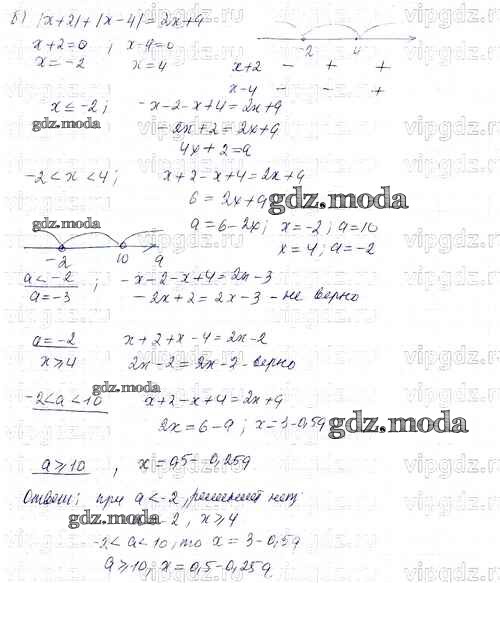 б) |x+2|+|x-4|=2x+a
x+2=0 , x-4=0
x=-2 x=4
-2 4
x+2 - + +
x-4 - - +
x≤-2; -x-2-x+4=2x+a
gdz.moda
-2x+2=2x+a
4x+2=a
-2<x<4; x+2-x+4=2x+a
6=2x+a
gdz.moda
a=6-2x; x=-2; a=10
x=4; a=-2
gdz.moda
-2 10 a
a<-2 ; -x-2-x+4=2x-3
a=-3 -2x+2=2x-3 - не верно
a=-2 x+2+x-4=2x-2
x≥4 2x-2=2x-2 - верно
gdz.moda
-2<a<10 x+2-x+4=2x+a
2x=6-a; x=3-0,5a
gdz.moda
a≥10 , x=0,5-0,25a
Ответ: при a<-2, решений нет
gdz.moda
-2, x≥4
-2<a<10, то x=3-0,5a
a≥10, x=0,5-0,25a